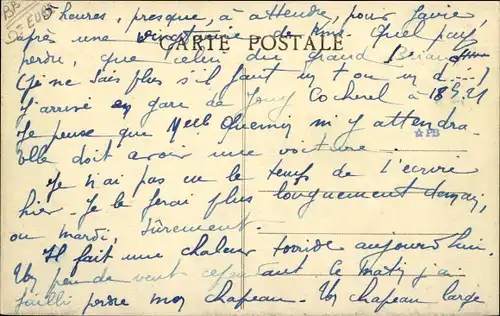 BB
Dt EURE
heures, presque, à attendre, pour Pavie,
après une vingtaine de kms. Quel pays
CARTE POSTALE
perdu, que celui du grand Briand
(je ne sais plus s'il faut un t ou un d ---)
J'arrive en gare de Jouy Cocherel à 18h21
Je pense que Melle Quemin m'y attendra.
☆ PB
elle doit avoir une voiture.
Je n'ai pas eu le temps de t'écrire
hier. Je le ferai plus longuement demain,
ou mardi, sûrement.
Il fait une chaleur torride aujourd'hui.
Un peu de vent cependant. Ce matin j'ai
failli perdre mon chapeau. Un chapeau large